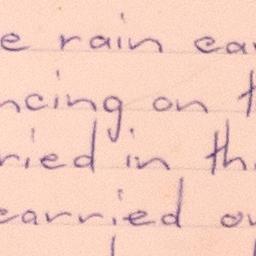 e rain ca
ncing on t
ried in th
carried o